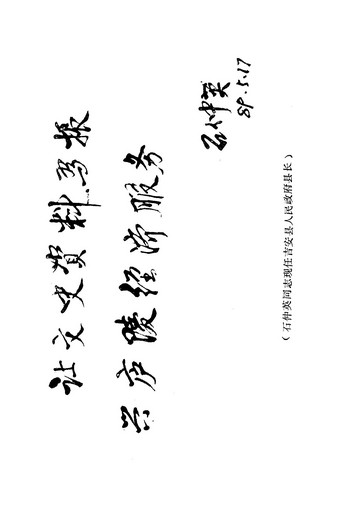 让文史资料为振
兴庐陵经济服务
石仲英
89.5.17
(石仲英同志现任吉安县人民政府县长)